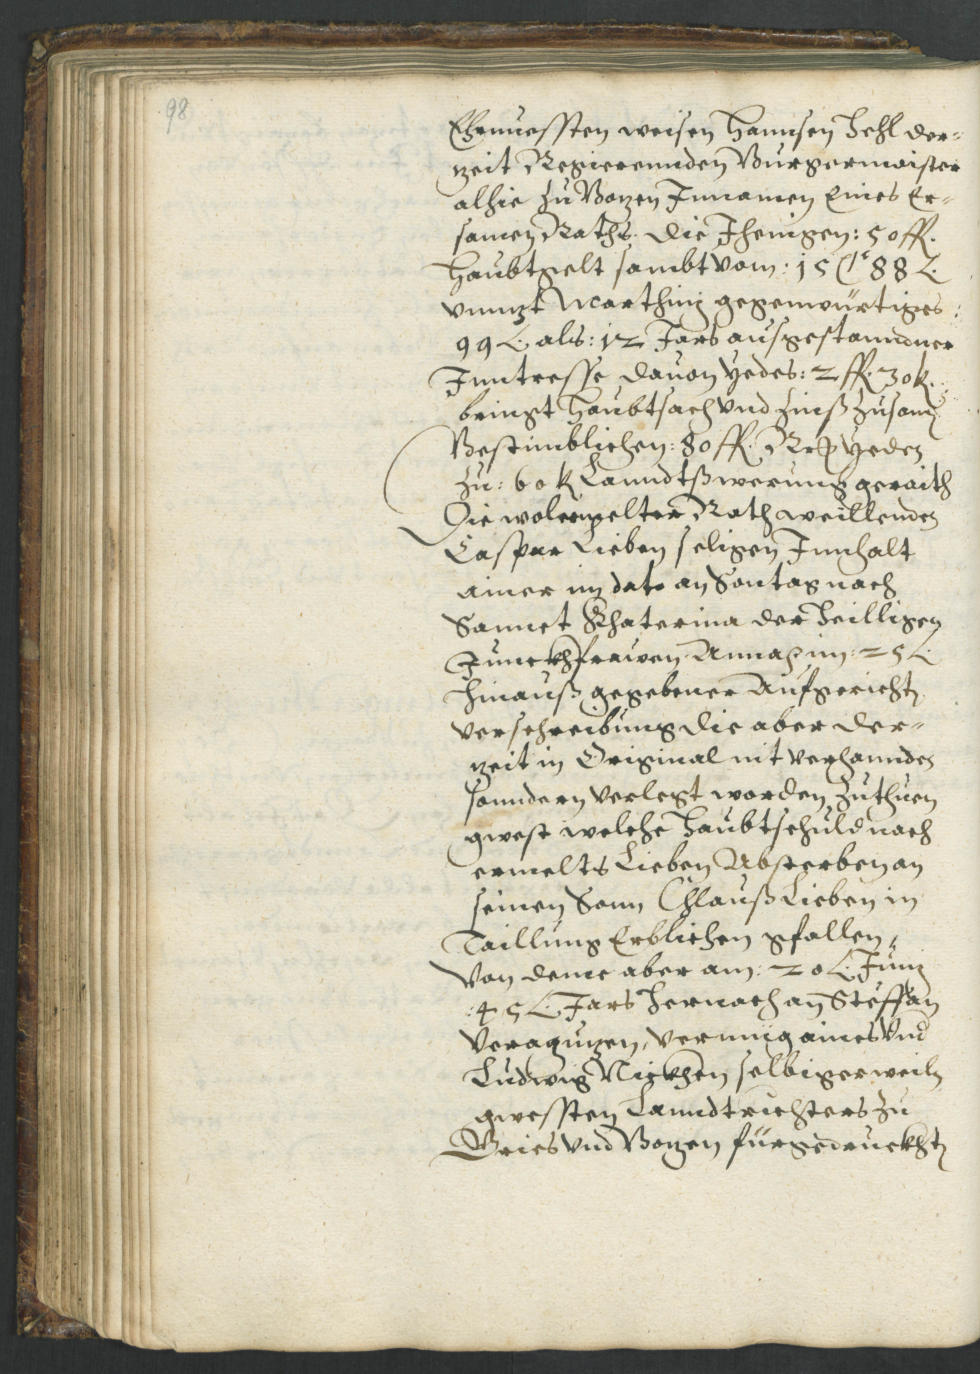 98
Ehrnuessten weisen Hannsen Hehl der-
zeit Regierennden Burgermaister
alhie zu Bozen Innamen Eines Er-
samen Raths. die Jhenigen: 50 ff.
haubtgelt sambt vom: 15 88
vnnzt Marthinj gegenwürtiges
99 als: 12 Jars ausgestanndner
Inntresse dauon yedes: 2 ff. 30 k.
bringt Haubtsach vnd Zinß zusamen
Bestimblichen: 80 ff. yeden
zu: 60 k Lanndtßwerung geraith
Die wolermelter Rath weillenden
Caspar Lieben seligen Innhalt
ainer im dato an Sontag nach
Sannct Khaterina der Heilligen
Junckhfrawen Anna im: 25
hinauß gegebener Aufgerichten
verschreibung die aber der-
zeit in Original nit verhannden
sonndern verlegt worden zuthuen
gwest welche Haubtschuld nach
ermelts Lieben Absterben an
seinen Sonn Chlauß Lieben in
Taillung Erblichen gfallen,
Von deme aber am: 20 Junj
: 45 Jars hernach an Steffan
Veraguzen, vermüg aines Vnd
Ludwig selbiger weil
gwessten Lanndtrichters zu
Gries vnd Bozen fürgedruckhten